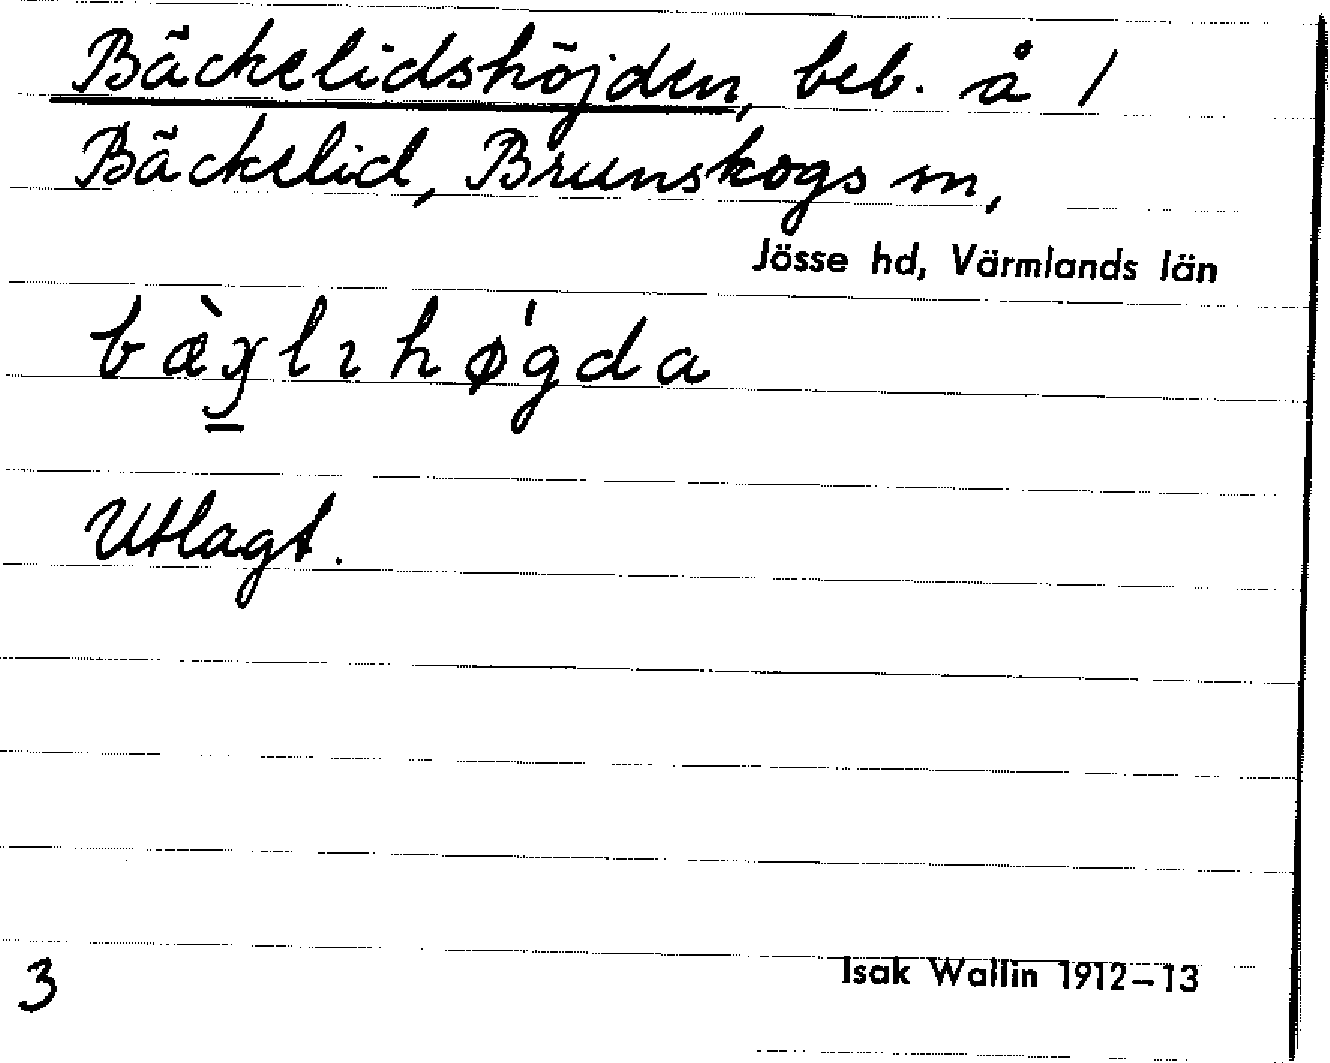 Bäckelidshöjden, beb. å 1
Bäckelid, Brunskogs sn,
Jösse hd, Värmlands län
bæ̀ɣ̱lıhǿgda
Utlagt.
3
Isak Wallin 1912–13